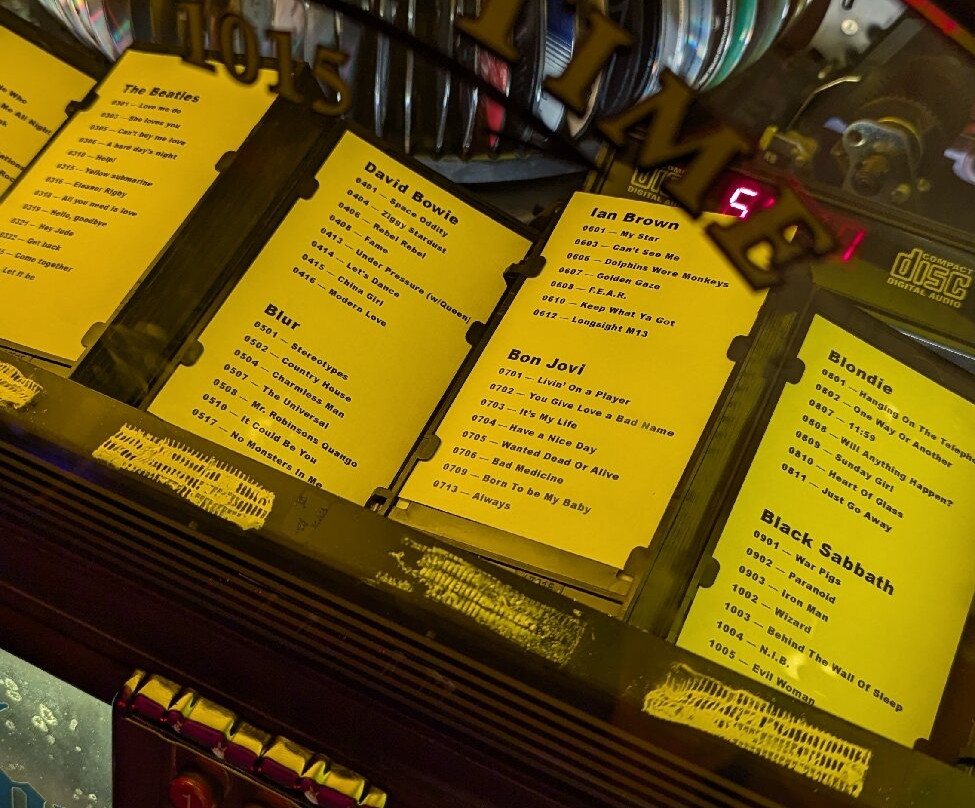 1015
TIME
COMPACT
disc
DIGITAL AUDIO
5
1
COMPACT
disc
DIGITAL AUDIO
Who
Me All Night
The Beatles
0301 — Love me do
0302 — She loves you
0305 — Can't buy me love
0308 — A hard day's night
0310 — Help!
0315 — Yellow submarine
0316 — Eleanor Rigby
0318 — All you need is love
0319 — Hello, goodbye
0321 — Hey Jude
0322 — Get back
— Come together
Let it be
David Bowie
0401 — Space Oddity
0404 — Ziggy Stardust
0406 — Rebel Rebel
0408 — Fame
0413 — Under Pressure (w/Queen)
0414 — Let's Dance
0415 — China Girl
0416 — Modern Love
Blur
0501 — Stereotypes
0502 — Country House
0504 — Charmless Man
0507 — The Universal
0508 — Mr. Robinsons Quango
0510 — It Could Be You
0517 — No Monsters In Me
Ian Brown
0601 — My Star
0603 — Can't See Me
0606 — Dolphins Were Monkeys
0607 — Golden Gaze
0608 — F.E.A.R.
0610 — Keep What Ya Got
0612 — Longsight M13
Bon Jovi
0701 — Livin' On a Player
0702 — You Give Love a Bad Name
0703 — It's My Life
0704 — Have a Nice Day
0705 — Wanted Dead Or Alive
0706 — Bad Medicine
0709 — Born To be My Baby
0713 — Always
Blondie
0801 — Hanging On The Teleph
0802 — One Way Or Another
0807 — 11:59
0808 — Will Anything Happen?
0809 — Sunday Girl
0810 — Heart Of Glass
0811 — Just Go Away
Black Sabbath
0901 — War Pigs
0902 — Paranoid
0903 — Iron Man
1002 — Wizard
1003 — Behind The Wall Of Sleep
1004 — N.I.B.
1005 — Evil Woman
1